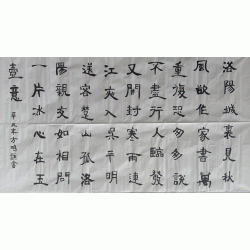 洛陽城裏見秋
風欲作家書萬
重復恐匆匆說
不盡行人臨發
又開封寒雨連
江夜入吳平明
送客楚山孤洛
陽親友如相問
一片冰心在玉
壺意 辛丑冬方書